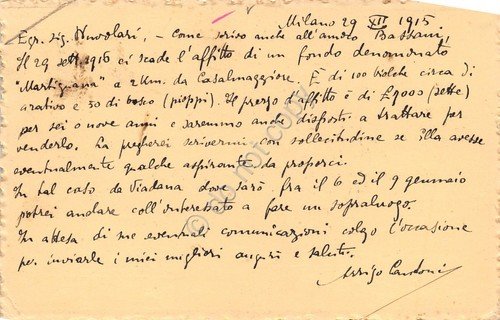 Milano 29 XII 1915
Egr. sig. Nuvolari, – come scrivo anche all'amico Bassani,
il 29 sett. 1916 ci scade l'affitto di un fondo denominato
"Martignana" a 2 Km. da Casalmaggiore. È di 100 biolche circa di
arativo e 30 di bosco (pioppi). Il prezzo d'affitto è di £ 7000 (sette)
per sei o nove anni e saremmo anche disposti a trattare per
venderlo. La pregherei scrivermi, con sollecitudine se ella avesse
eventualmente qualche aspirante da proporci.
In tal caso da Viadana dove sarò fra il 6 ed il 9 gennaio
potrei andare coll'interessato a fare un sopraluogo.
In attesa di sue eventuali comunicazioni colgo l'occasione
per inviarle i miei migliori auguri e saluti.
Arrigo